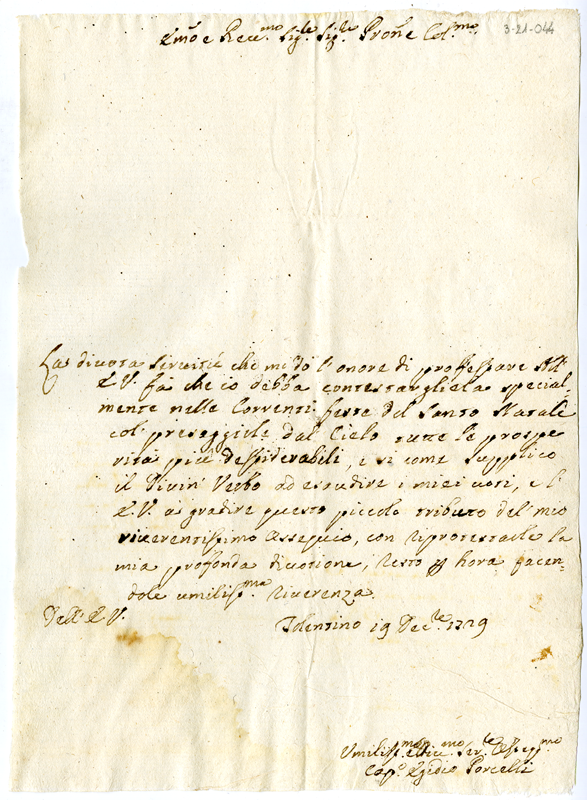 3-21-044
Emo e Reve.mo Sig.re Sig.re Prone Col.mo
La divota servitù che mi dò l'onore di professare all'
E.V. fà che io debba contestargliela special-
mente nelle correnti feste del Santo Natale
col' presaggirle dal Cielo tutte le prospe
rità più desiderabili, e si come supplico
il Divin' Verbo ad esaudire i miei voti, e l'
E.V. a gradire questo piccolo tributo del mio
riverentissimo ossequio, con riprotestarle la
mia profonda divotione, resto p hora facen-
dole umiliss.ma riverenza.
Dell' E.V.
Tolentino 19 Dec.re 1729
Umiliss.mo Ser.re Osseqq.mo
Cap.o Egidio Porcelli